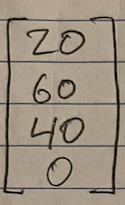 20
60
40
0